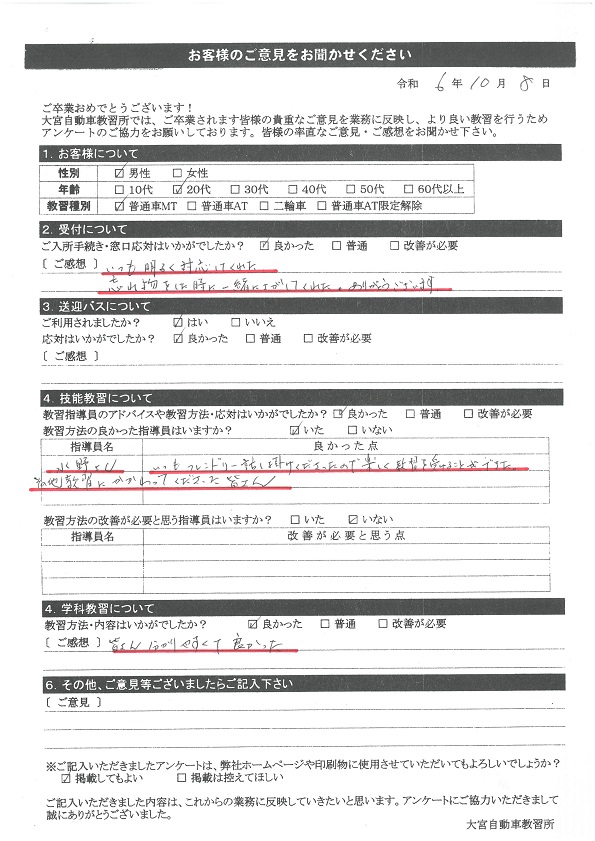 お客様のご意見をお聞かせください
令和 6 年 10 月 8 日
ご卒業おめでとうございます！
大宮自動車教習所では、ご卒業されます皆様の貴重なご意見を業務に反映し、より良い教習を行うため
アンケートのご協力をお願いしております。皆様の率直なご意見・ご感想をお聞かせ下さい。
1. お客様について
性別 ☑ 男性 □ 女性
年齢 □ 10代 ☑ 20代 □ 30代 □ 40代 □ 50代 □ 60代以上
教習種別 ☑ 普通車MT □ 普通車AT □ 二輪車 □ 普通車AT限定解除
2. 受付について
ご入所手続き・窓口応対はいかがでしたか？ ☑ 良かった □ 普通 □ 改善が必要
〔 ご感想 〕 いつも明るく対応してくれた
忘れ物をした時に一緒にさがしてくれた。ありがとうございます
3. 送迎バスについて
ご利用されましたか？ ☑ はい □ いいえ
応対はいかがでしたか？ ☑ 良かった □ 普通 □ 改善が必要
〔 ご感想 〕
4. 技能教習について
教習指導員のアドバイスや教習方法・応対はいかがでしたか？ ☑ 良かった □ 普通 □ 改善が必要
教習方法の良かった指導員はいますか？ ☑ いた □ いない
指導員名 良かった点
水野さん いつもフレンドリーに話し掛けてくださったので楽しく教習を受けることができた
その他教習にかかわってくださった皆さん
教習方法の改善が必要と思う指導員はいますか？ □ いた ☑ いない
指導員名 改善が必要と思う点
4. 学科教習について
教習方法・内容はいかがでしたか？ ☑ 良かった □ 普通 □ 改善が必要
〔 ご感想 〕 皆さん分かりやすくて良かった
6. その他、ご意見等ございましたらご記入下さい
〔 ご意見 〕
※ご記入いただきましたアンケートは、弊社ホームページや印刷物に使用させていただいてもよろしいでしょうか？
☑ 掲載してもよい □ 掲載は控えてほしい
ご記入いただきました内容は、これからの業務に反映していきたいと思います。アンケートにご協力いただきまして
誠にありがとうございました。
大宮自動車教習所